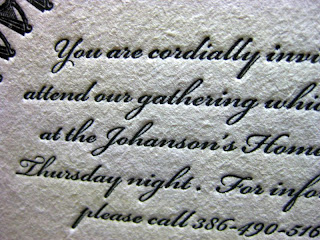 You are cordially invi
attend our gathering whic
at the Johanson's Home
Thursday night. For info
please call 386-490-516